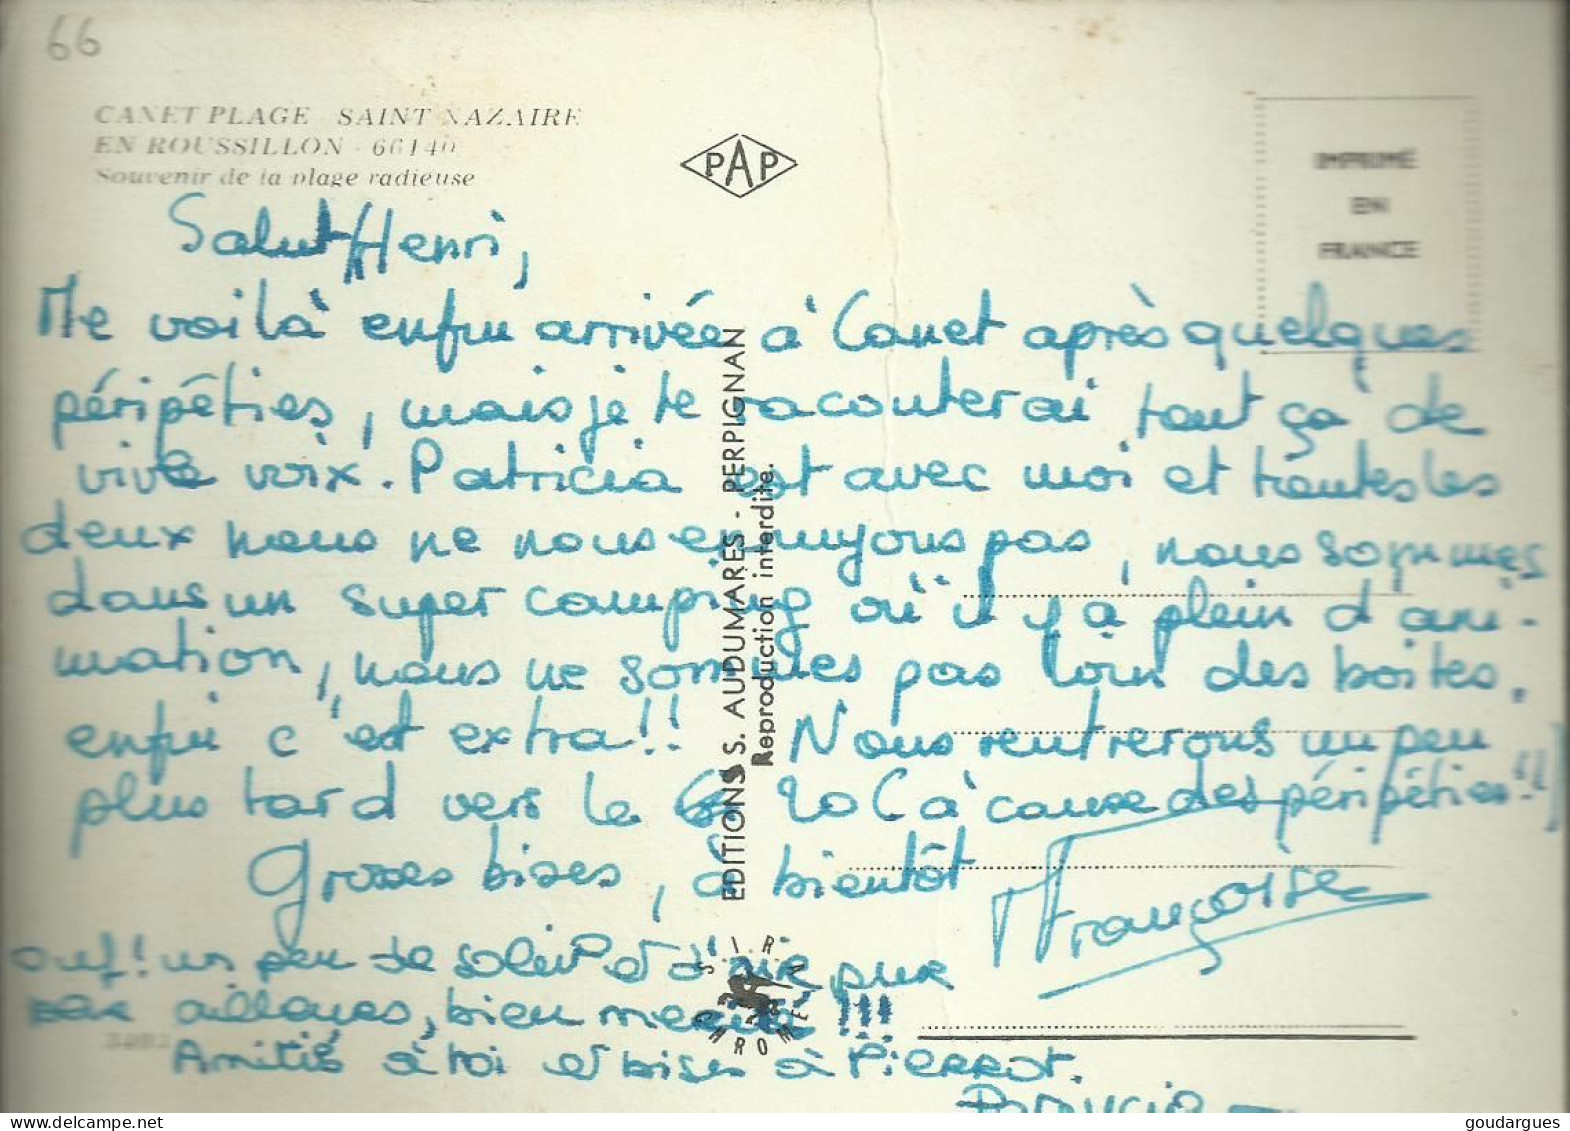 66
CANET PLAGE - SAINT NAZAIRE
EN ROUSSILLON - 66140
Souvenir de la plage radieuse
PAP
IMPRIMÉ
EN
FRANCE
Salut Henri,
Me voilà enfin arrivée à Canet après quelques
péripéties, mais je te raconterai tout ça de
vive voix. Patricia est avec moi et toutes les
deux nous ne nous ennuyons pas, nous sommes
dans un super camping où il y a plein d'ani-
mation, nous ne sommes pas loin des boites,
enfin c'est extra!! Nous rentrerons un peu
plus tard vers le 20 (à cause des péripéties!!)
Grosses bises, à bientôt
Françoise
ouf! un peu de soleil et d'air pur
ailleurs, bien mérité !!!
Amitiés à toi et bises à Pierrot.
Patricia
EDITIONS S. AUDUMARES - PERPIGNAN
Reproduction interdite.
S.I.R.
CHROME
goudargues © delcampe.net